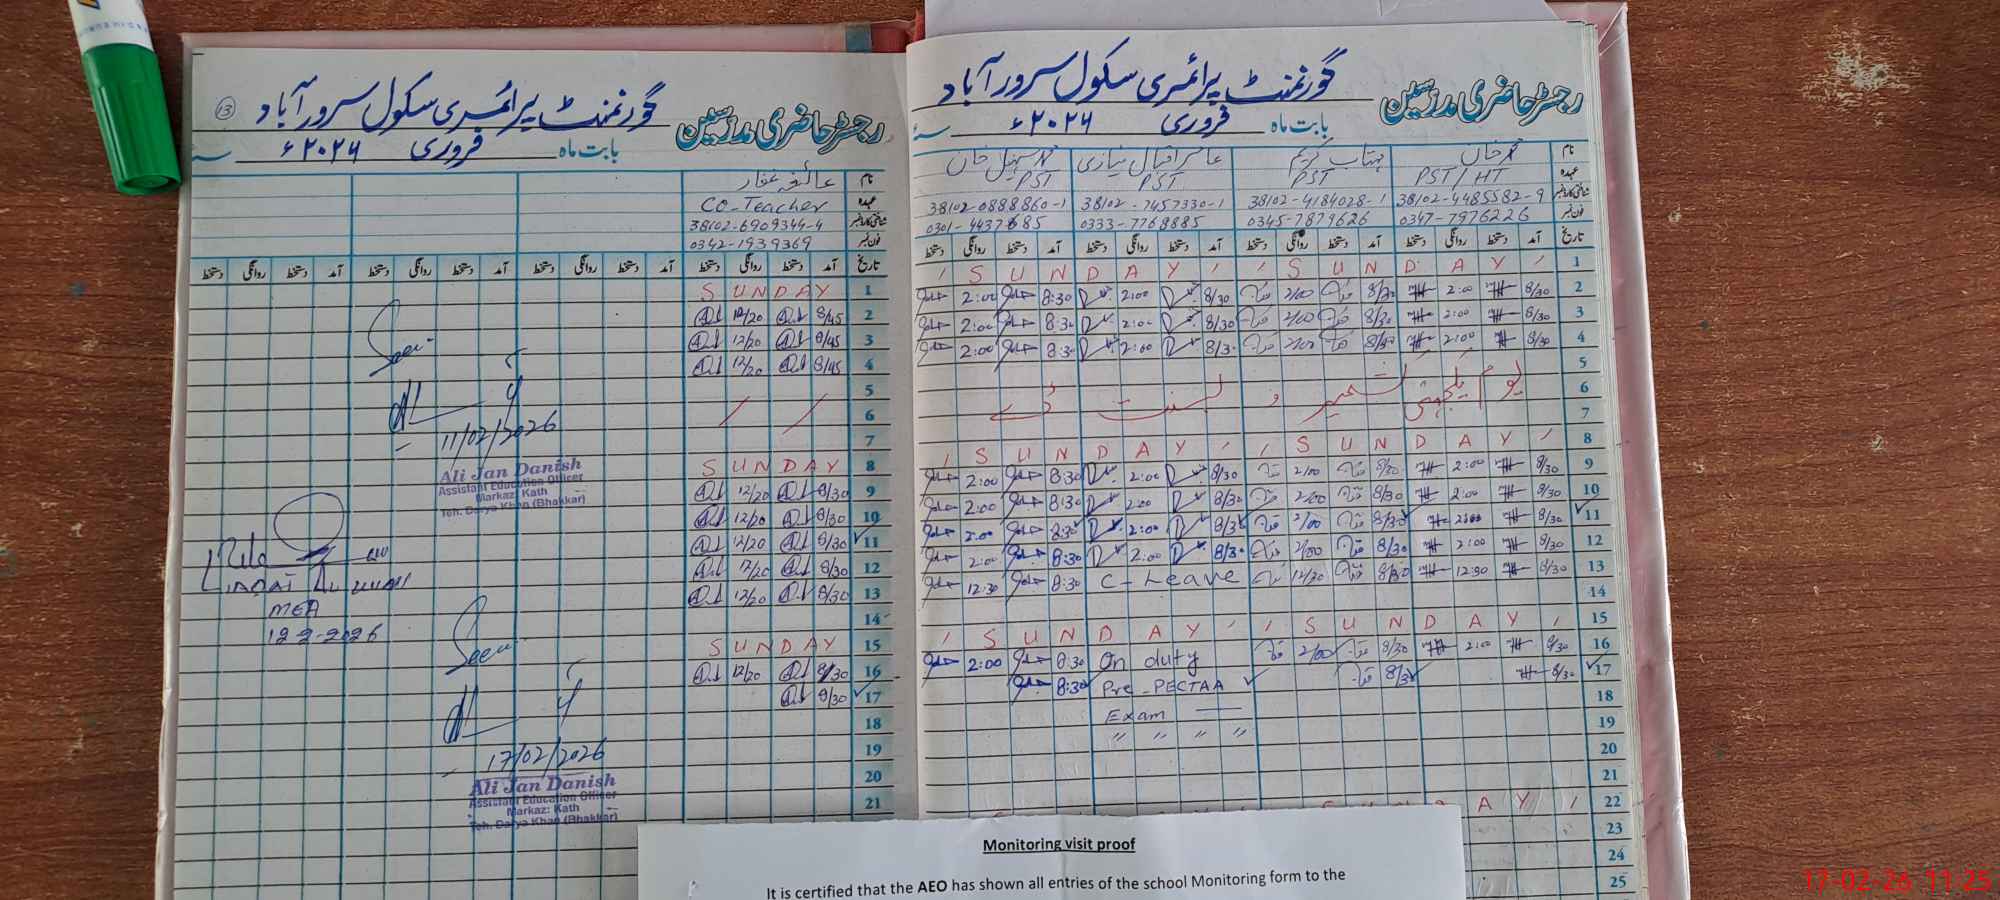 گورنمنٹ پرائمری سکول سرور آباد
رجسٹر حاضری مدرسین
بابت ماہ فروری ۲۰۲۶ء
نام عائفہ غفار
عہدہ CO-Teacher
شناختی کارڈ نمبر 38102-6909344-4
فون نمبر 0342-1939369
تاریخ آمد دستخط روانگی دستخط آمد دستخط روانگی دستخط آمد دستخط روانگی دستخط آمد دستخط روانگی دستخط
SUNDAY 1
12/20 8/45 2
12/20 8/45 3
12/20 8/45 4
5
6
7
SUNDAY 8
12/20 8/30 9
12/20 8/30 10
12/20 8/30 11
12/20 8/30 12
12/20 8/30 13
14
SUNDAY 15
12/20 8/30 16
8/30 17
18
19
20
21
13
Seen
11/02/2026
Ali Jan Danish
Assistant Education Officer
Markaz: Kath
Teh. Darya Khan (Bhakkar)
MEA
12-2-2026
Seen
17/02/2026
Ali Jan Danish
Assistant Education Officer
Markaz: Kath
Teh. Darya Khan (Bhakkar)
گورنمنٹ پرائمری سکول سرور آباد
رجسٹر حاضری مدرسین
بابت ماہ فروری ۲۰۲۶ء
نام خان مہتاب کریم عامر اقبال نیازی محمد سہیل خان
عہدہ PST/HT PST PST PST
شناختی کارڈ نمبر 38102-4485582-9 38102-4184028-1 38102-7457330-1 38102-0888860-1
فون نمبر 0347-7976226 0345-7879626 0333-7768885 0301-4437685
تاریخ آمد دستخط روانگی دستخط آمد دستخط روانگی دستخط آمد دستخط روانگی دستخط آمد دستخط روانگی دستخط
SUNDAY SUNDAY 1
2:00 8:30 2:00 8/30 2/00 8/30 2:00 8/30 2
2:00 8:30 2:00 8/30 2/00 8/30 2:00 8/30 3
2:00 8:30 2:00 8/30 2/00 8/30 2:00 8/30 4
5
یوم یکجہتی کشمیر و بسنت ڈے 6
7
SUNDAY SUNDAY 8
2:00 8:30 2:00 8/30 2/00 8/30 2:00 8/30 9
2:00 8:30 2:00 8/30 2/00 8/30 2:00 8/30 10
2:00 8:30 2:00 8/30 2/00 8/30 2:00 8/30 11
2:00 8:30 2:00 8/30 2/00 8/30 2:00 8/30 12
12:30 8:30 C-Leave 12/30 8/30 12:30 8/30 13
14
SUNDAY SUNDAY 15
2:00 8:30 On duty 2/00 8/30 2:00 8/30 16
8:30 Pre-PECTAA 8/30 8/30 17
Exam 18
" " " " 19
20
21
A Y 22
23
24
25
Monitoring visit proof
It is certified that the AEO has shown all entries of the school Monitoring form to the
17-02-26 11:25